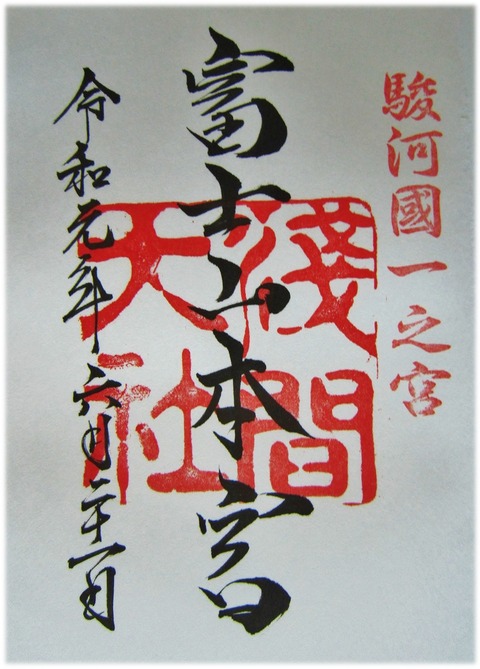 駿河國一之宮
富士山本宮
淺間
大社
令和元年六月二十一日